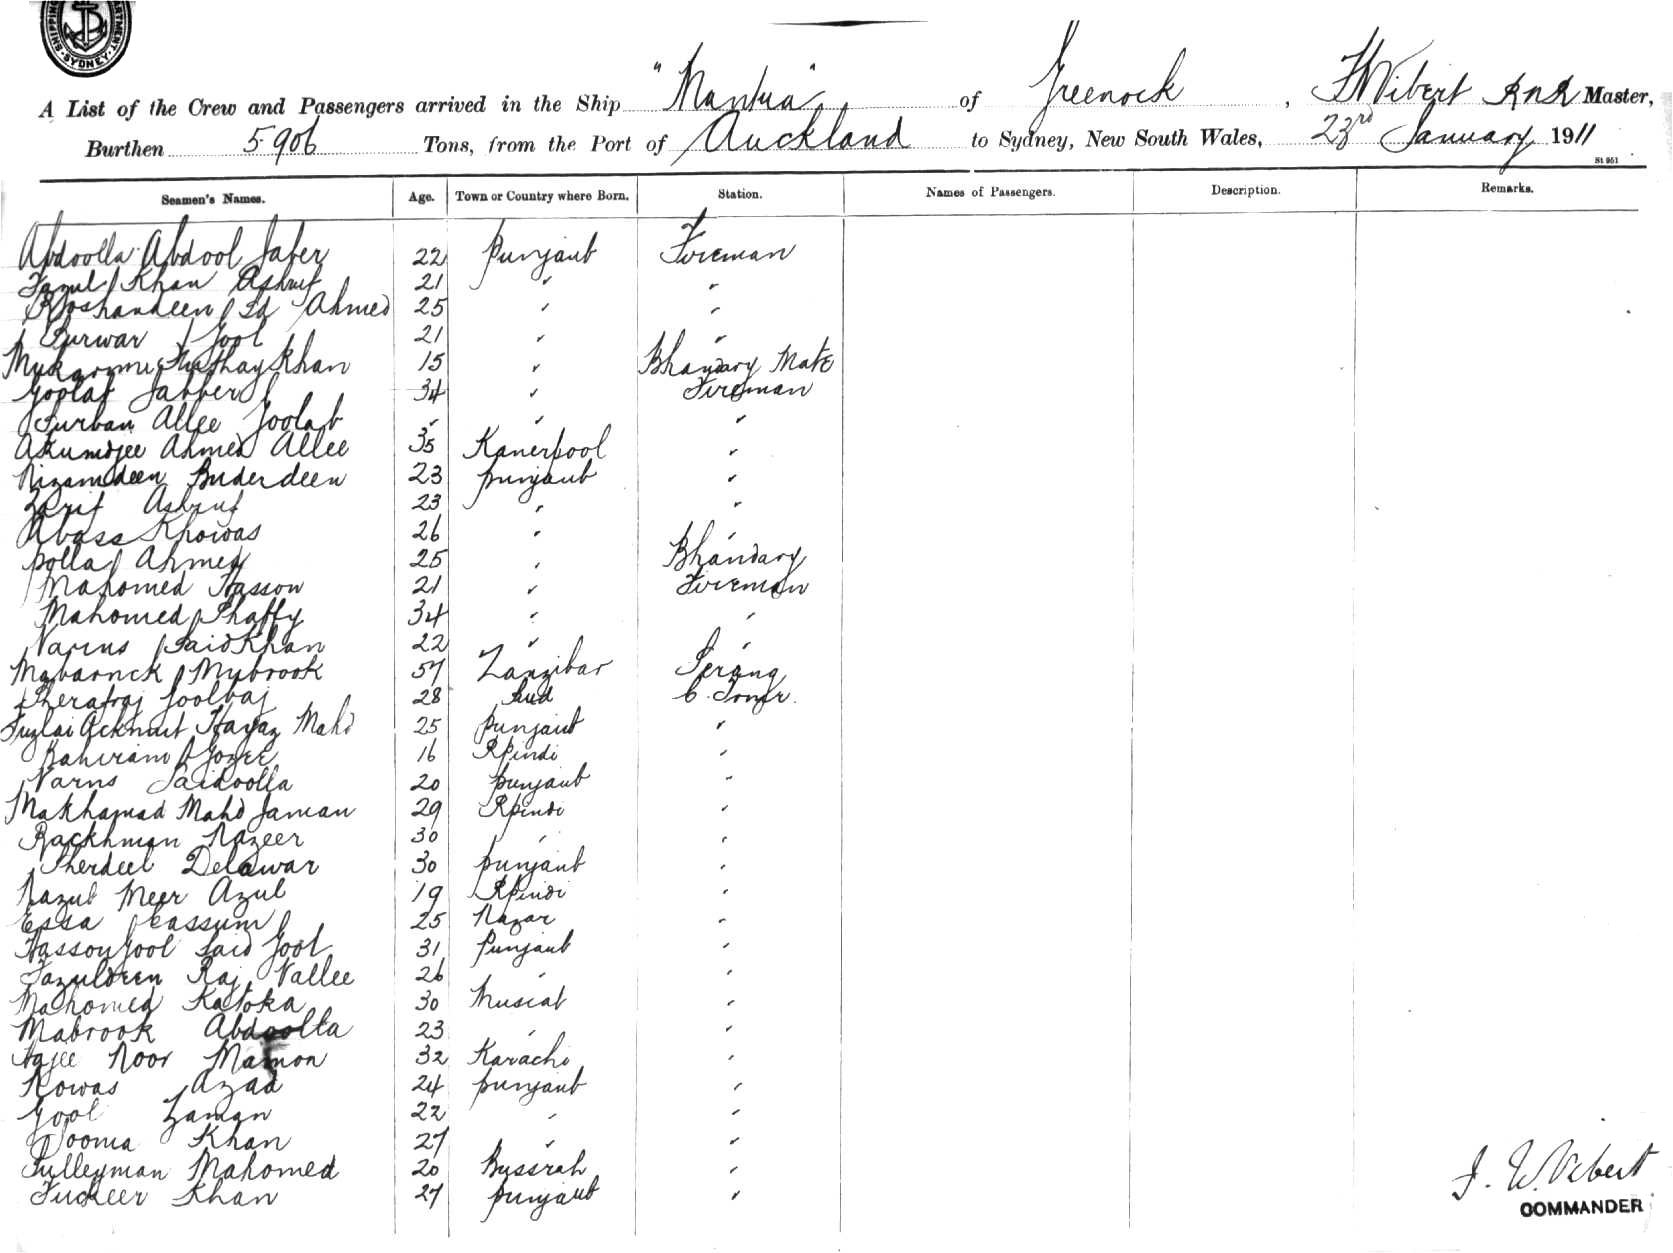 SHIPPING DEPARTMENT SYDNEY
A List of the Crew and Passengers arrived in the Ship "Mantua" of Greenock, F W Vibert RNR Master,
Burthen 5906 Tons, from the Port of Auckland to Sydney, New South Wales, 23rd January 1911
St 951
Seamen's Names. Age. Town or Country where Born. Station. Names of Passengers. Description. Remarks.
Abdoolla Abdool Jafer 22 Punjaub Fireman
Fazul Khan Ashruf 21 " "
Roshandeen Sd Ahmed 25 " "
Surwar Gool 21 " "
Khan 15 " Bhandary Mate
Goolaf Jabber 34 " Fireman
Surban Allee Goolab " " "
Akumdjee Ahmed Allee 35 Kanerpool "
Nizamdeen Buderdeen 23 Punjaub "
Zarif Ashruf 23 " "
Abass Khowas 26 " "
Dolla Ahmed 25 " Bhandary
Mahomed Hasson 21 " Fireman
Mahomed Shaffy 34 " "
Narns Said Khan 22 " "
Mabarnck Mybrook 57 Zanzibar Serang
Goolbaj 28 Sud C. Trimr.
Hayaz Mahd 25 Punjaub "
Kahiram Gozee 16 RPindi "
Narns Saidoolla 20 Punjaub "
Makhamad Mahd Jaman 29 RPindi "
Rackhman Nazeer 30 " "
Sherdeel Delawar 30 Punjaub "
Nazub Meer Azul 19 RPindi "
Essa Cassum 25 Nagar "
Hasson Gool Said Gool 31 Punjaub "
Fazuldeen Raj Vallee 26 " "
Mahomed Katoka 30 Muscat "
Mabrook Abdoolla 23 " "
Hajee Noor Mamon 32 Karachi "
Kowas Azad 24 Punjaub "
Gool Zaman 22 " "
Dooma Khan 27 " "
Sulleyman Mahomed 20 Bussrah "
Fuckeer Khan 27 Punjaub "
F. W. Vibert
COMMANDER